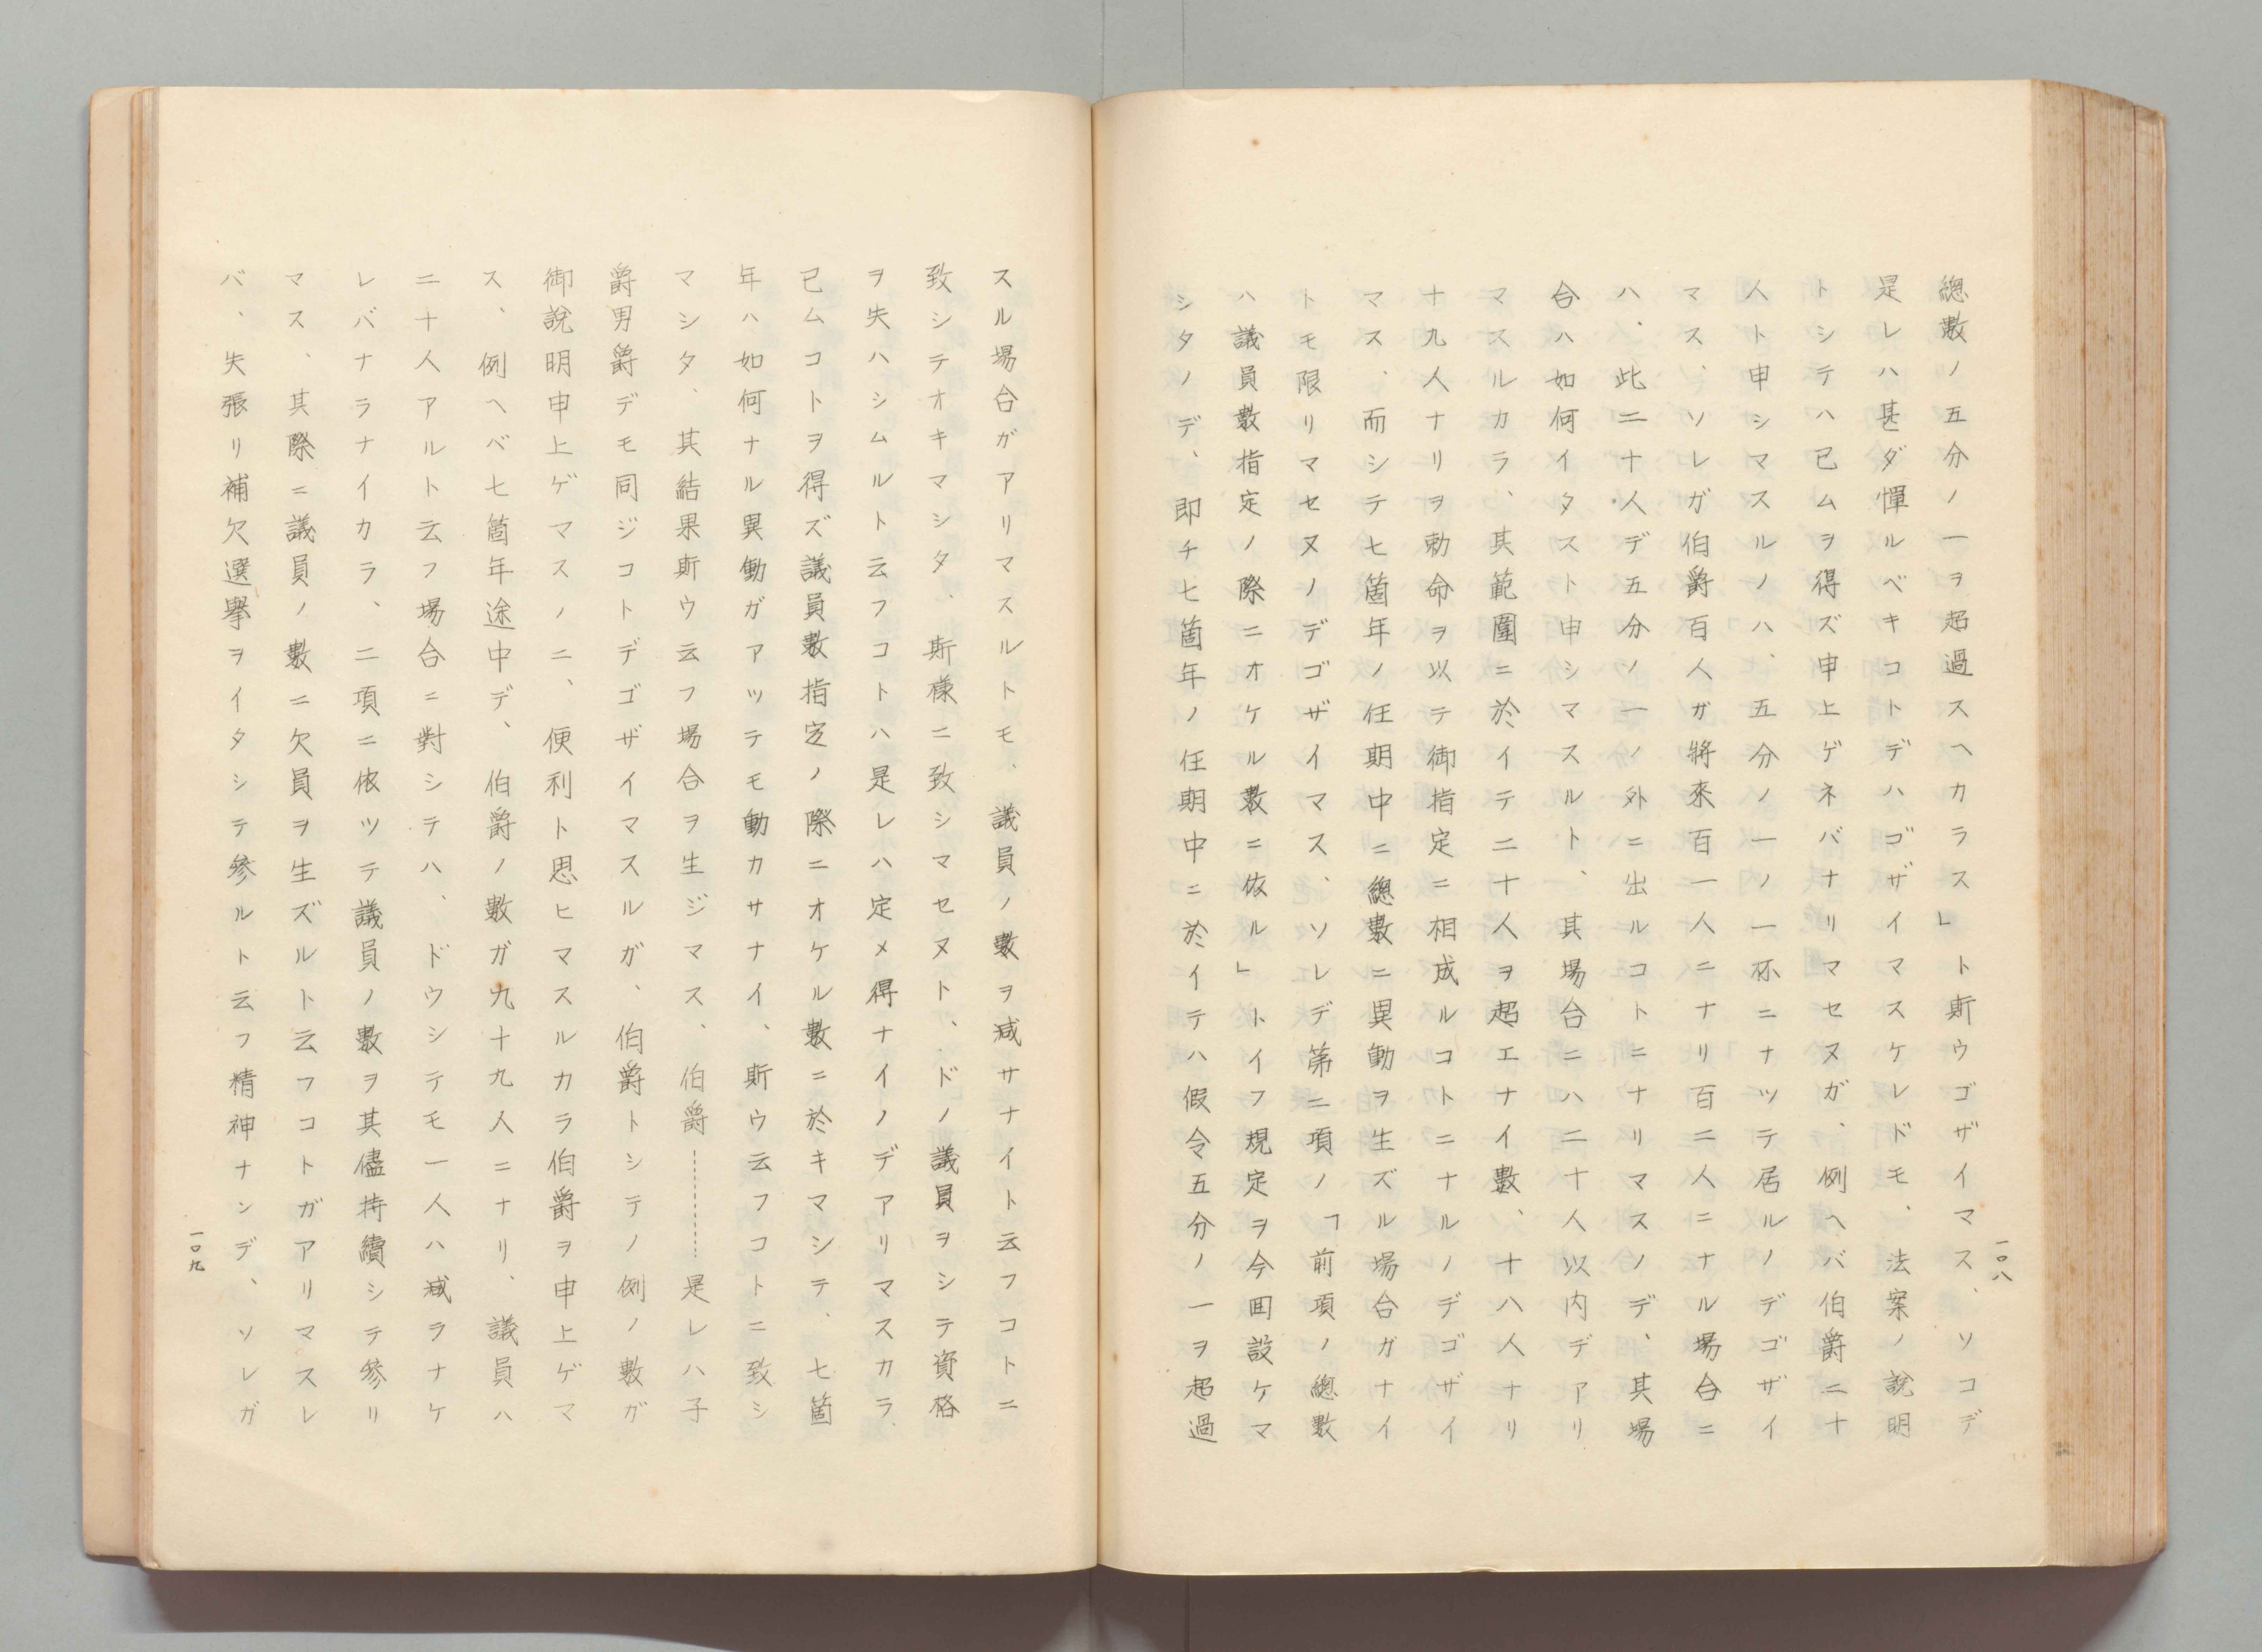 總數ノ五分ノ一ヲ超過スヘカラス」ト斯ウゴザイマス、ソコデ
是レハ甚ダ憚ルベキコトデハゴザイマスケレドモ、法案ノ說明
トシテハ已ムヲ得ズ申上ゲネバナリマセヌガ、例ヘバ伯爵二十
人ト申シマスルノハ、五分ノ一ノ一杯ニナツテ居ルノデゴザイ
マス、ソレガ伯爵百人ガ將來百一人ニナリ百二人ニナル場合ニ
ハ、此二十人デ五分ノ一ノ外ニ出ルコトニナリマスノデ、其場
合ハ如何イタスト申シマスルト、其場合ニハ二十人以内デアリ
マスルカラ、其範圍ニ於イテ二十人ヲ超エナイ數、十八人ナリ
十九人ナリヲ勅命ヲ以テ御指定ニ相成ルコトニナルノデゴザイ
マス、而シテ七箇年ノ任期中ニ總數ニ異動ヲ生ズル場合ガナイ
トモ限リマセヌノデゴザイマス、ソレデ第二項ノ「前項ノ總數
ハ議員數指定ノ際ニオケル數ニ依ル」トイフ規定ヲ今囬設ケマ
シタノデ、即チ七箇年ノ任期中ニ於イテハ假令五分ノ一ヲ超過
一〇八
スル場合ガアリマスルトモ、議員ノ數ヲ減サナイト云フコトニ
致シテオキマシタ、斯樣ニ致シマセヌト、ドノ議員ヲシテ資格
ヲ失ハシムルト云フコトハ是レハ定メ得ナイノデアリマスカラ、
已ムコトヲ得ズ議員數指定ノ際ニオケル數ニ於キマシテ、七箇
年ハ如何ナル異動ガアツテモ動カサナイ、斯ウ云フコトニ致シ
マシタ、其結果斯ウ云フ場合ヲ生ジマス、伯爵………是レハ子
爵男爵デモ同ジコトデゴザイマスルガ、伯爵トシテノ例ノ數ガ
御說明申上ゲマスノニ、便利ト思ヒマスルカラ伯爵ヲ申上ゲマ
ス、例ヘベ七箇年途中デ、伯爵ノ數ガ九十九人ニナリ、議員ハ
二十人アルト云フ場合ニ對シテハ、ドウシテモ一人ハ減ラナケ
レバナラナイカラ、二項ニ依ツテ議員ノ數ヲ其儘持續シテ參リ
マス、其際ニ議員ノ數ニ欠員ヲ生ズルト云フコトガアリマスレ
バ、失張リ補欠選擧ヲイタシテ參ルト云フ精神ナンデ、ソレガ
一〇九